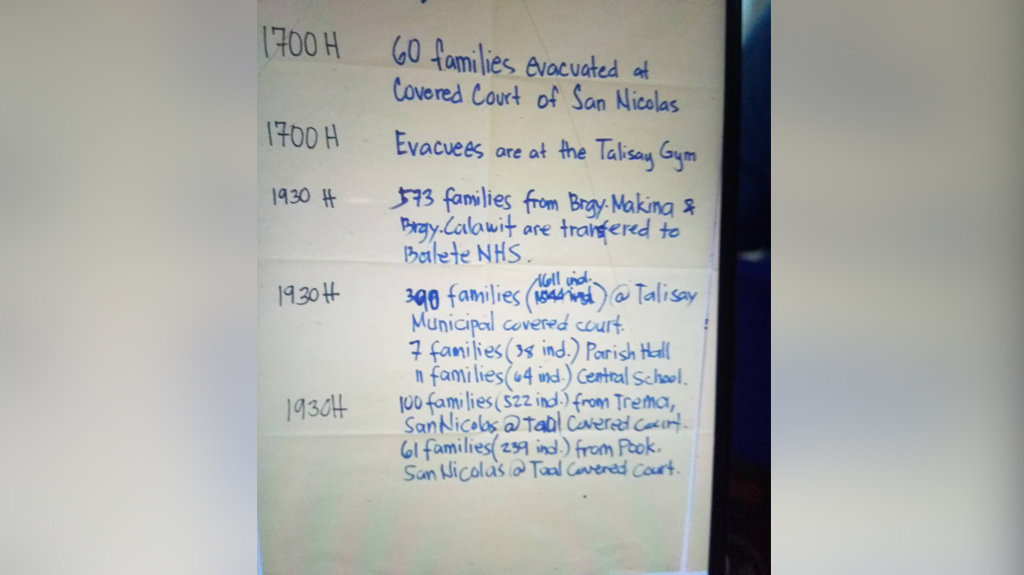 1700 H 60 families evacuated at
Covered Court of San Nicolas
1700 H Evacuees are at the Talisay Gym
1930 H 573 families from Brgy. Makina &
Brgy. Calawit are transfered to
Balete NHS.
1930 H families (1611 ind.) @ Talisay
Municipal covered court.
7 families (38 ind.) Parish Hall
11 families (64 ind.) Central School.
1930H 100 families (522 ind.) from Trema,
San Nicolas @ Taal Covered Court.
61 families (239 ind.) from Pook,
San Nicolas @ Taal Covered Court.